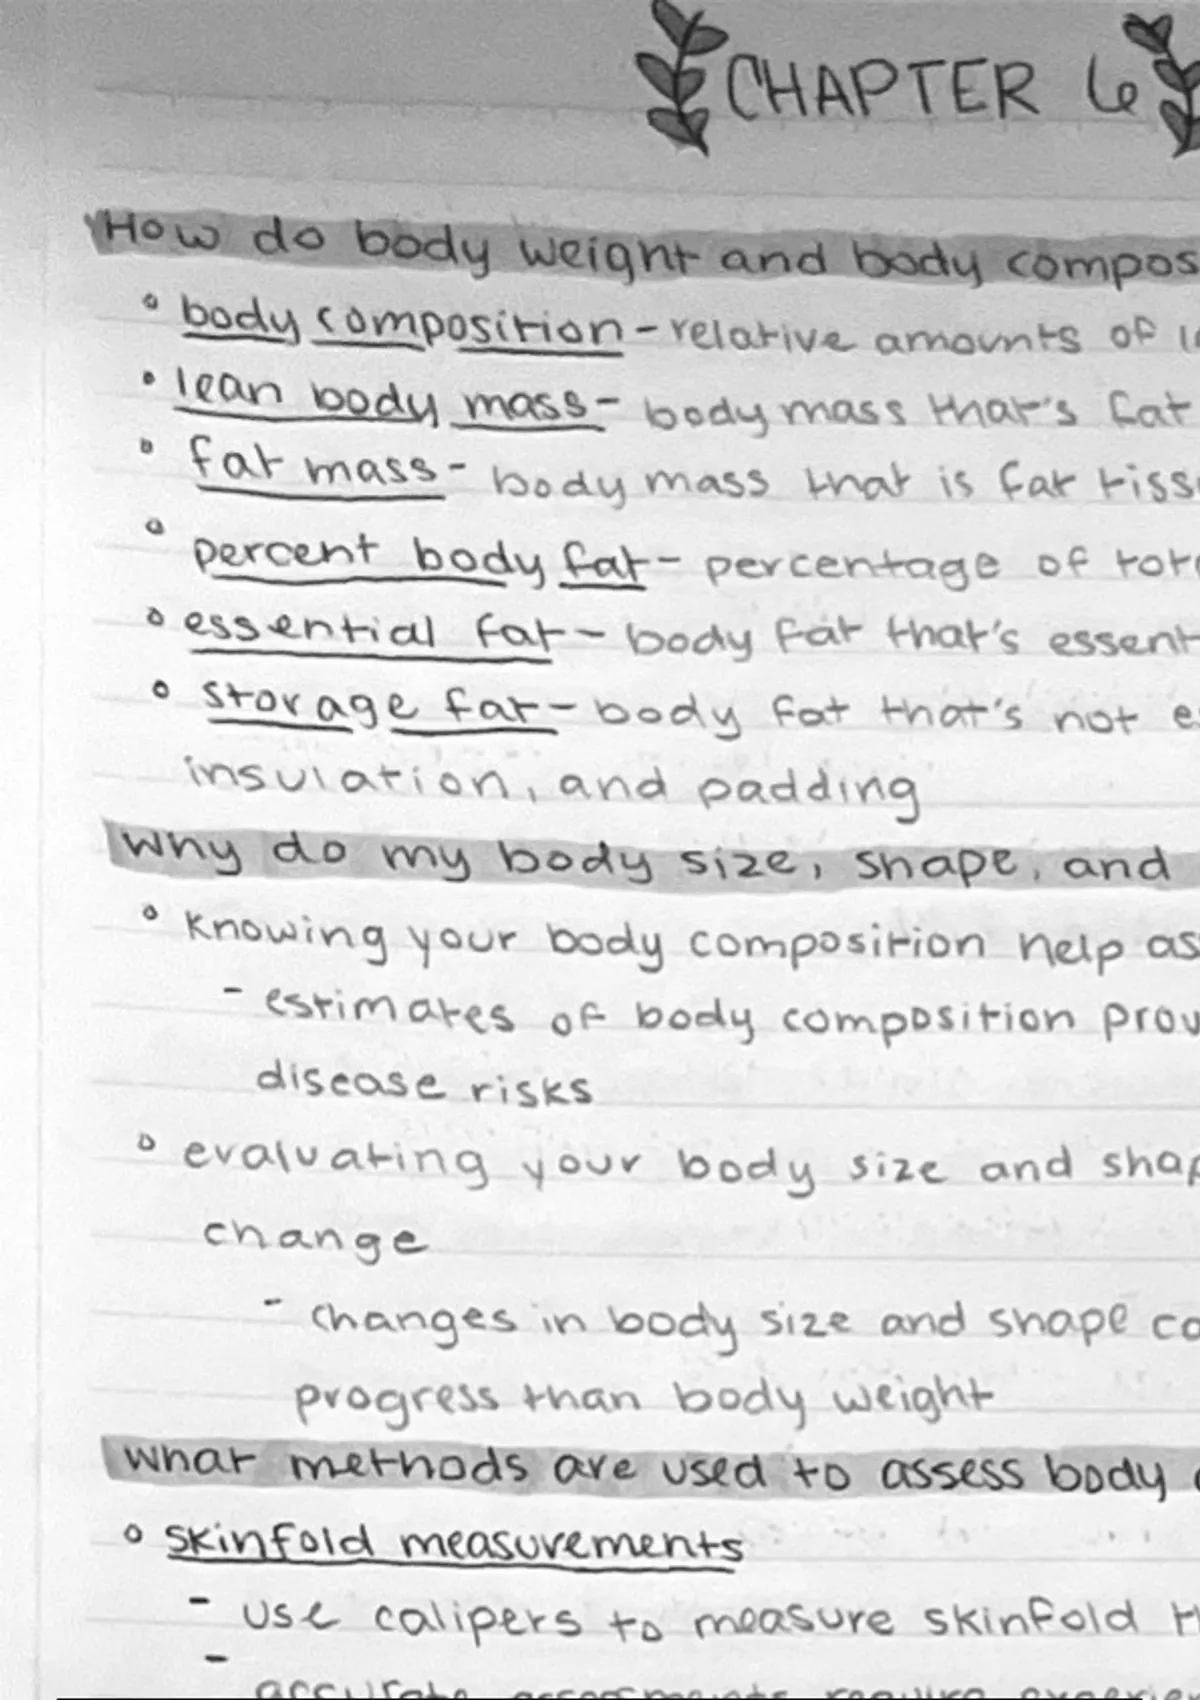 CHAPTER 6
How do body weight and body compos
body composition - relative amounts of
lean body mass - body mass that's fat
fat mass - body mass that is fat tiss
percent body fat - percentage of tot
essential fat - body fat that's essent
storage fat - body fat that's not e
insulation, and padding
Why do my body size, shape, and
Knowing your body composition help as
- estimates of body composition prov
disease risks
evaluating your body size and shap
change
- changes in body size and shape co
progress than body weight
what methods are used to assess body
skinfold measurements
- use calipers to measure skinfold th
- accurate assessments require